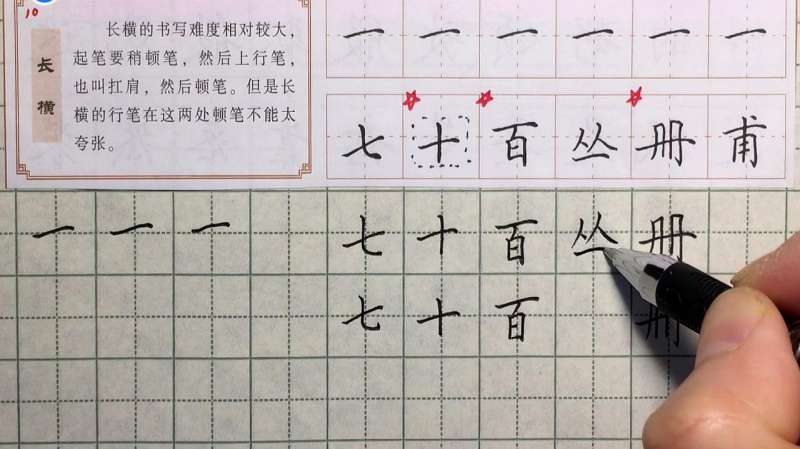 10
长横
长横的书写难度相对较大，
起笔要稍顿笔，然后上行笔，
也叫扛肩，然后顿笔。但是长
横的行笔在这两处顿笔不能太
夸张。
一 一 一 一 一 一
七 十 百 丛 册 甫
一 一 一 七 十 百 丛 册
七 十 百 册